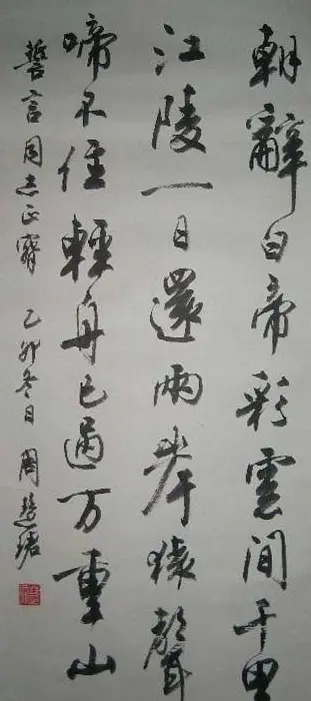 朝辭白帝彩雲間千里
江陵一日還兩岸猿聲
啼不住輕舟已過万重山
誓言同志正腕 乙卯冬日 周慧珺